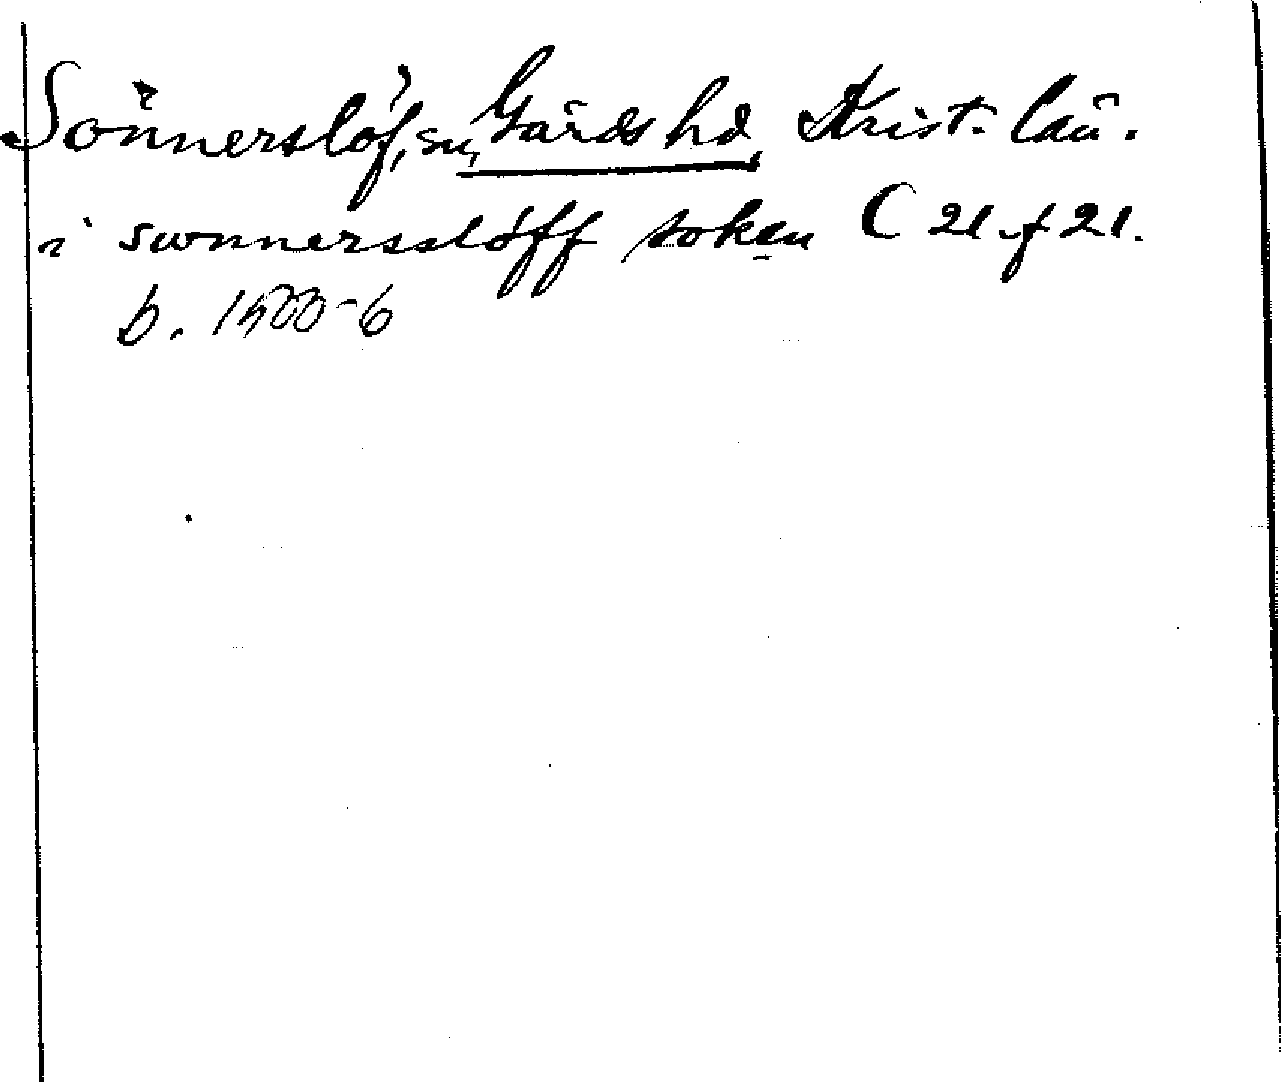 Sönnerslöf, sn, Gärds hd, Krist. län.
i swnnersslöff soken C 21 f 21.
b. 1500-6